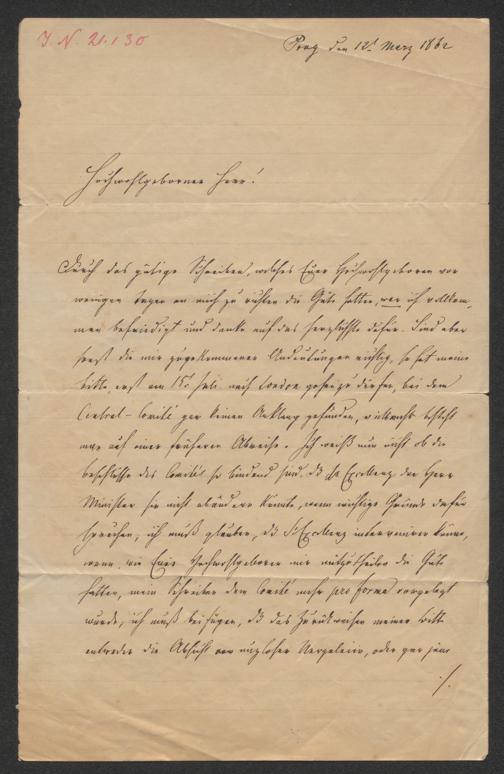 I. N. 21.130
Prag den 12t März 1862
Hochwohlgeborner Herr!
Durch das gütige Schreiben, welches Euer Hochwohlgeboren vor
wenigen Tagen an mich zu richten die Güte hatten, war ich vollkom-
men befriedigt und danke auf das herzlichste dafür. Sind aber
die mir zugekommenen Andeutungen richtig, so hat meine
Bitte, erst am 15t Juli nach London gehen zu dürfen, bei dem
Central-Comité gar keinen Anklang gefunden, vielmehr besteht
man auf einer früheren Abreise. Ich weiß nun nicht ob die
Beschlüsse des Comités so bindend sind, daß Se Excellenz der Herr
Minister sie nicht abändern könnte, wenn wichtige Gründe dafür
sprechen, ich muß glauben, daß Se Excellenz interveniren könne,
wenn, wie Euer Hochwohlgeboren mir mitzutheilen die Güte
hatten, mein Schreiben dem Comité mehr pro forma vorgelegt
wurde, ich muß beifügen, daß das Zurückweisen meiner Bitte
entweder die Absicht von nutzloser oder gar jene
./.